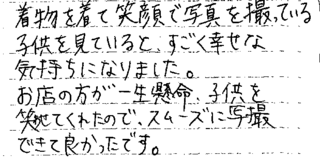 着物を着て笑顔で写真を撮っている
子供を見ていると、すごく幸せな
気持ちになりました。
お店の方が一生懸命、子供を
笑せてくれたので、スムーズに写撮
できて良かったです。